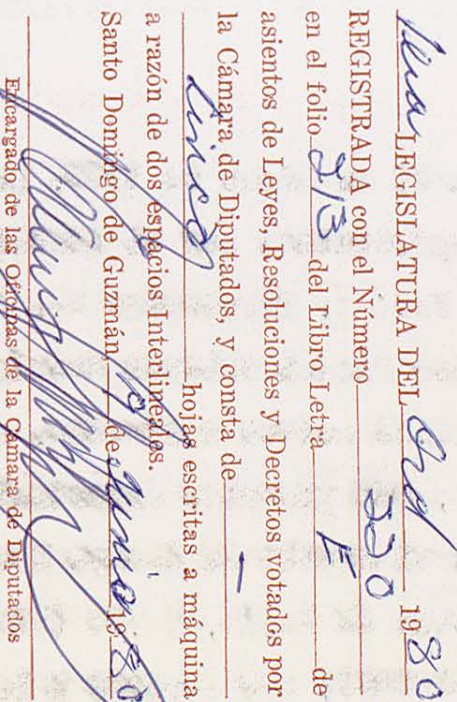 1era LEGISLATURA DEL Ord 1980
REGISTRADA con el Número 220
en el folio 213 del Libro Letra E de
asientos de Leyes, Resoluciones y Decretos votados por
la Cámara de Diputados, y consta de
Cinco hojas escritas a máquina
a razón de dos espacios interlineales.
Santo Domingo de Guzmán, 10 de Junio, 1980
Encargado de las Oficinas de la Cámara de Diputados